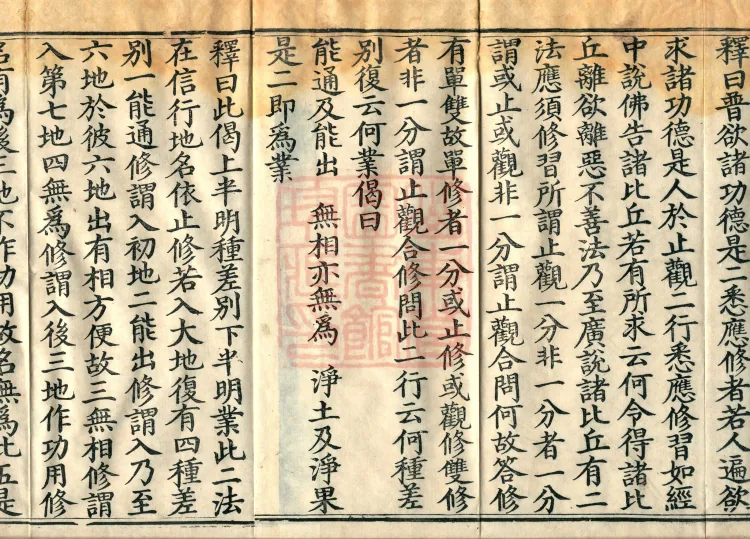 釋曰普欲諸功德是二悉應修者若人遍欲
求諸功德是人於止觀二行悉應修習如經
中說佛告諸比丘若有所求云何令得諸比
丘離欲離惡不善法乃至廣說諸比丘有二
法應須修習所謂止觀一分非一分者一分
謂或止或觀非一分謂止觀合問何故荅修
有單雙故單修者一分或止修或觀修雙修
者非一分謂止觀合修問此二行云何種差
別復云何業偈曰
能通及能出　無相亦無爲　淨土及淨果
是二即爲業
釋曰此偈上半明種差別下半明業此二法
在信行地名依止修若入大地復有四種差
別一能通修謂入初地二能出修謂入乃至
六地於彼六地出有相方便故三無相修謂
入第七地四無爲修謂入後三地作功用修
名有爲後三地不作功用故名無爲此五是